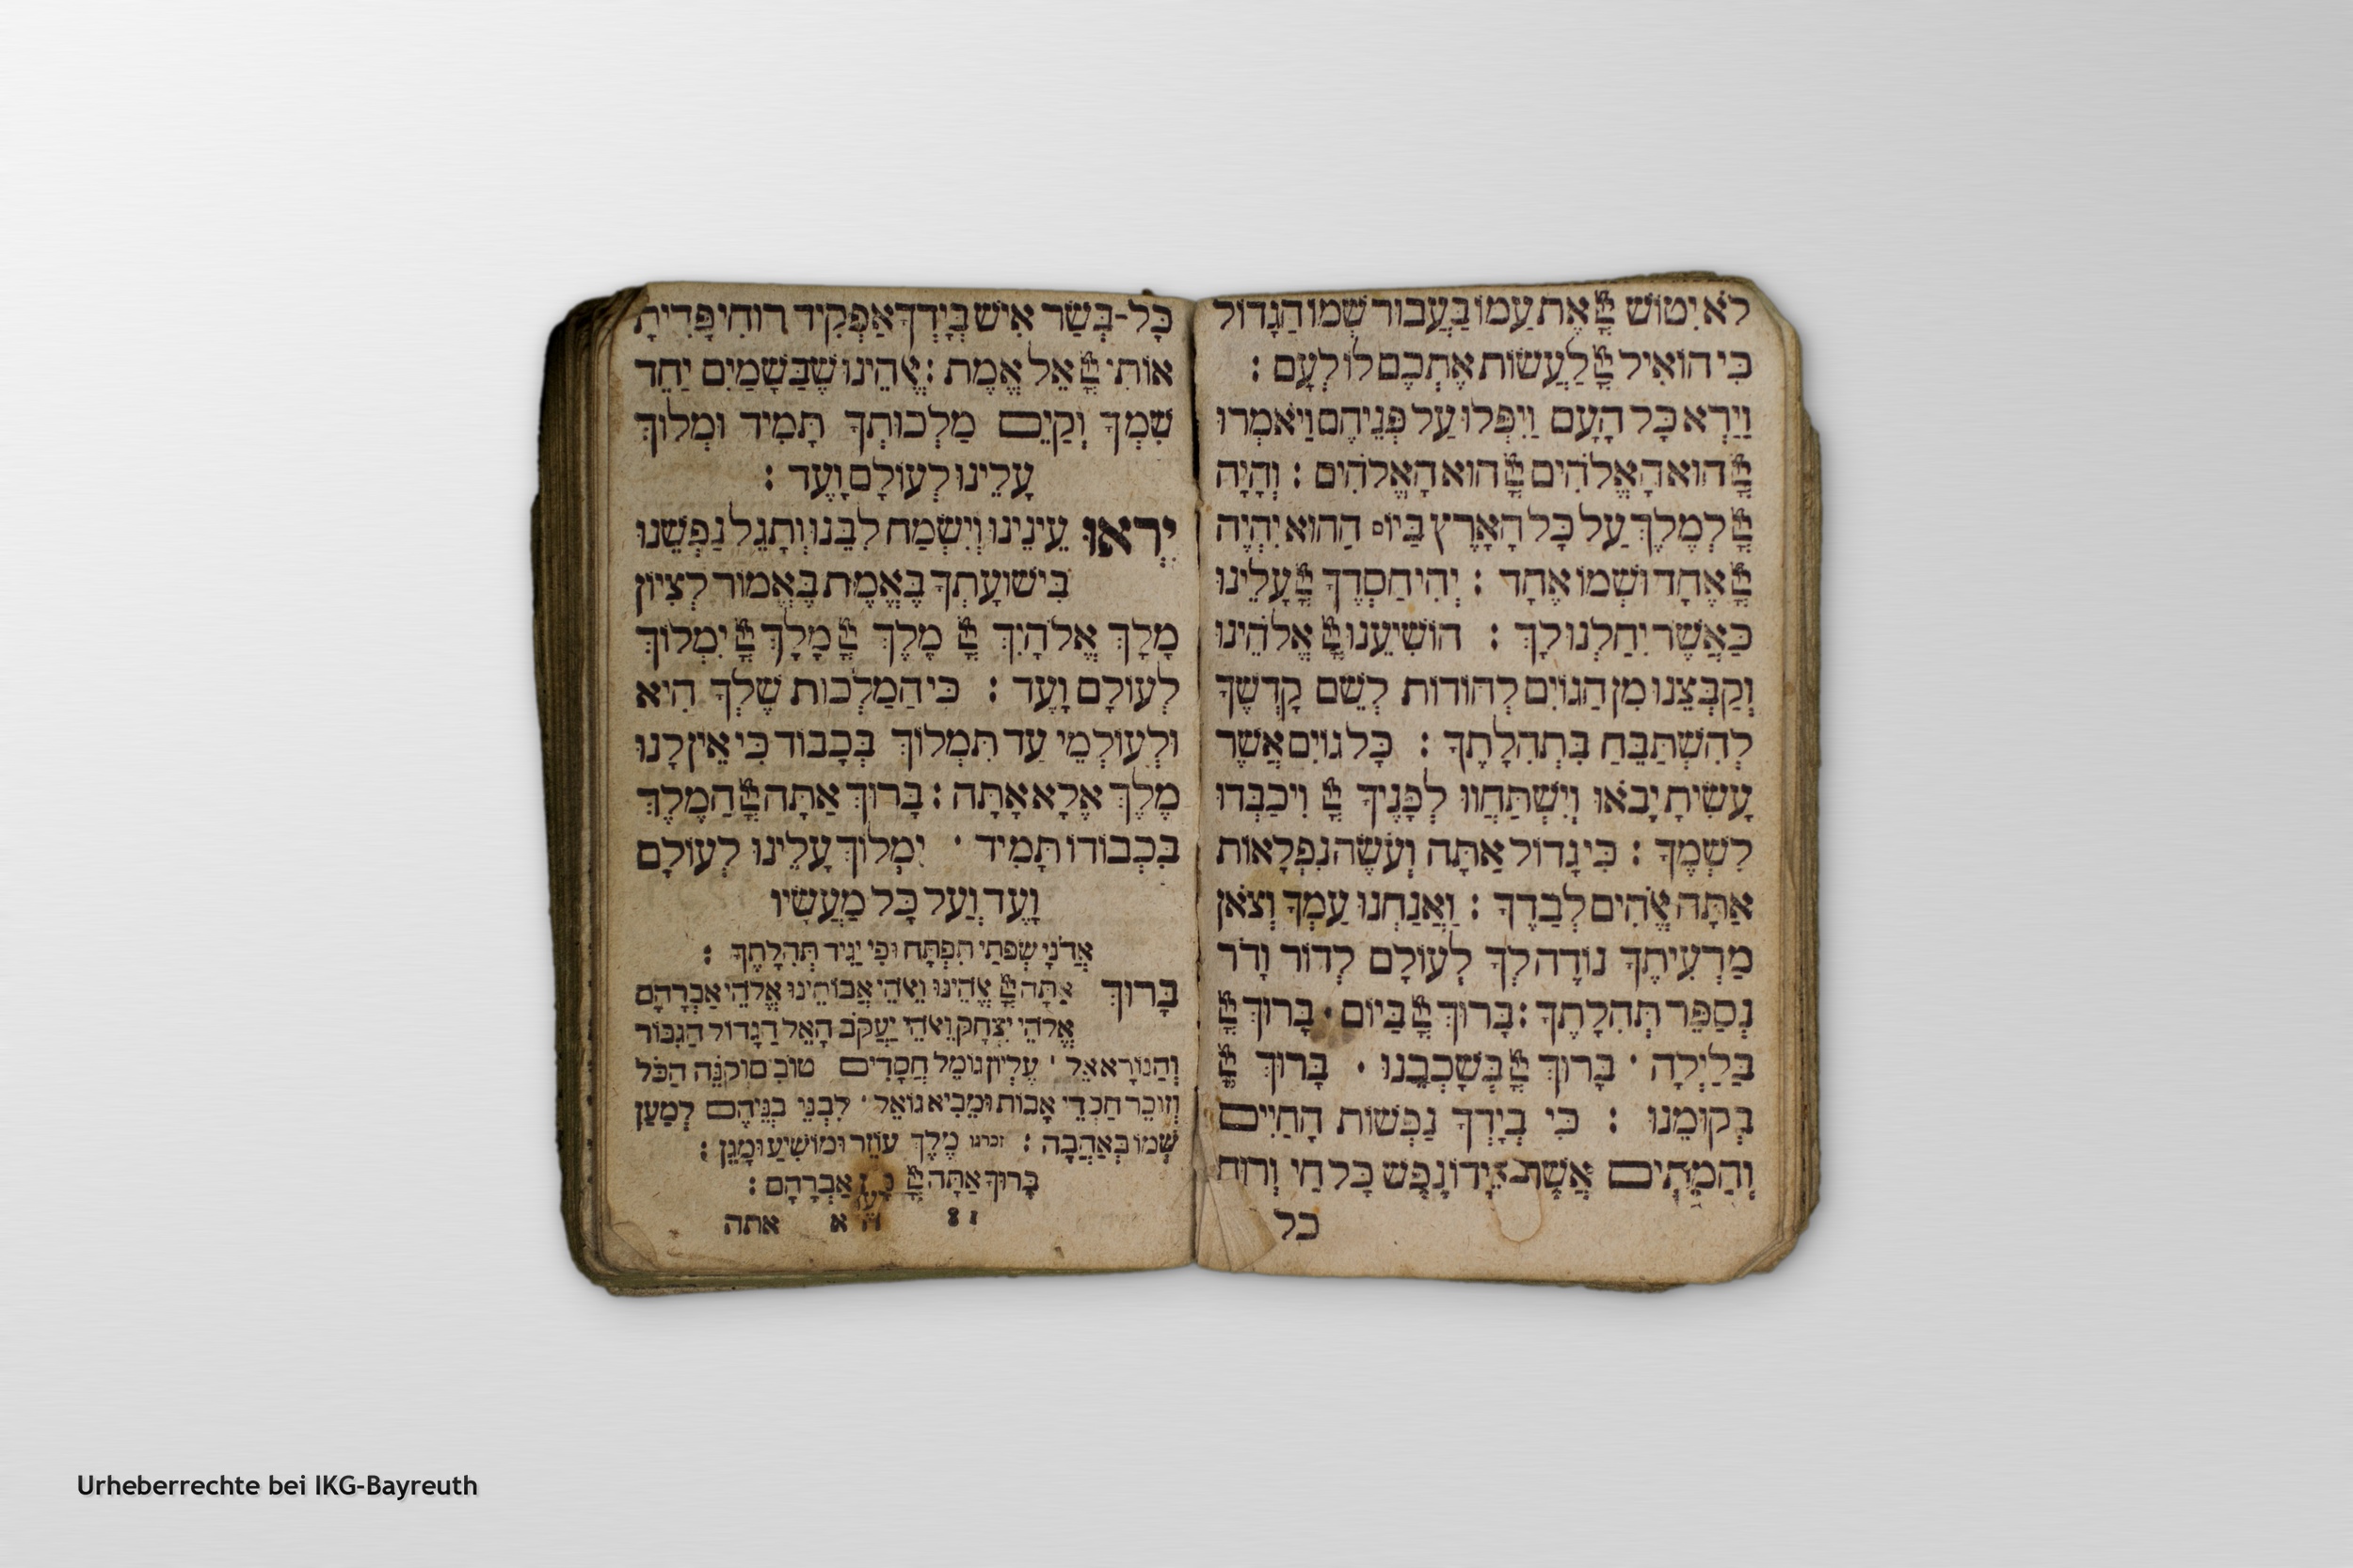 לֹא יִטוֹשׁ יְיָ אֶת עַמוֹ בַּעֲבוּר שְׁמוֹ הַגָדוֹל
כִּי הוֹאִיל יְיָ לַעֲשׂוֹת אֶתְכֶם לוֹ לְעָם :
וַיַרְא כָּל הָעָם וַיִפְּלוּ עַל פְּנֵיהֶם וַיֹאמְרוּ
יְיָ הוּא הָאֱלֹהִים יְיָ הוּא הָאֱלֹהִים : וְהָיָה
יְיָ לְמֶלֶךְ עַל כָּל הָאָרֶץ בַּיוֹם הַהוּא יִהְיֶה
יְיָ אֶחָד וּשְׁמוֹ אֶחָד : יְהִי חַסְדְךָ יְיָ עָלֵינוּ
כַּאֲשֶׁר יִחַלְנוּ לָךְ : הוֹשִׁיעֵנוּ יְיָ אֱלֹהֵינוּ
וְקַבְּצֵנוּ מִן הַגוֹיִם לְהוֹדוֹת לְשֵׁם קָדְשֶׁךָ
לְהִשְׁתַּבֵּחַ בִּתְהִלָתֶךָ : כָּל גוֹיִם אֲשֶׁר
עָשִׂיתָ יָבֹאוּ וְיִשְׁתַּחֲווּ לְפָנֶיךָ יְיָ וִיכַבְּדוּ
לִשְׁמֶךָ : כִּי גָדוֹל אַתָּה וְעֹשֶׂה נִפְלָאוֹת
אַתָּה אֱﭏהִים לְבַדֶךָ : וַאֲנַחְנוּ עַמְךָ וְצֹאן
מַרְעִיתֶךָ נוֹדֶה לְךָ לְעוֹלָם לְדוֹר וָדֹר
נְסַפֵּר תְּהִלָתֶךָ : בָּרוּךְ יְיָ בַּיוֹם · בָּרוּךְ יְיָ
בַּלַיְלָה · בָּרוּךְ יְיָ בְּשָׁכְבֵנוּ · בָּרוּךְ יְיָ
בְּקוּמֵנוּ : כִּי בְיָדְךָ נַפְשׁוֹת הַחַיִים
וְהַמֵתִים אֲשֶׁר בְּיָדוֹ נֶפֶשׁ כָּל חַי וְרוּחַ
כל
כָּל-בְּשַׂר אִישׁ בְּיָדְךָ אַפְקִיד רוּחִי פָּדִיתָ
אוֹתִי יְיָ אֵל אֱמֶת : ﭏהֵינוּ שֶׁבַּשָׁמַיִם יַחֵד
שִׁמְךָ וְקַיֵם מַלְכוּתְךָ תָּמִיד וּמְלוֹךְ
עָלֵינוּ לְעוֹלָם וָעֶד :
יִרְאוּ עֵינֵינוּ וְיִשְׂמַח לִבֵּנוּ וְתָגֵל נַפְשֵׁנוּ
בִּישׁוּעָתְךָ בֶּאֱמֶת בֶּאֱמוֹר לְצִיוֹן
מָלַךְ אֱלֹהָיִךְ יְיָ מֶלֶךְ יְיָ מָלָךְ יְיָ יִמְלוֹךְ
לְעוֹלָם וָעֶד : כִּי הַמַלְכוּת שֶׁלְךָ הִיא
וּלְעוֹלְמֵי עַד תִּמְלוֹךְ בְּכָבוֹד כִּי אֵין לָנוּ
מֶלֶךְ אֶלָא אָתָּה : בָּרוּךְ אַתָּה יְיָ הַמֶלֶךְ
בִּכְבוֹדוֹ תָּמִיד · יִמְלוֹךְ עָלֵינוּ לְעוֹלָם
וָעֶד וְעַל כָּל מַעֲשָׂיו
אֲדֹנָי שְׂפָתַי תִּפְתָּח וּפִי יַגִיד תְּהִלָתֶךָ :
בָּרוּךְ אַתָּה יְיָ אֱﭏהֵינוּ וֵﭏהֵי אֲבוֹתֵינוּ אֱלֹהֵי אַבְרָהָם
אֱלֹהֵי יִצְחָק וֵﭏהֵי יַעֲקֹב הָאֵל הַגָדוֹל הַגִבּוֹר
וְהַנוֹרָא אֵל · עֶלְיוֹן גוֹמֵל חֲסָדִים טוֹבִים וְקֹנֵה הַכֹּל
וְזוֹכֵר חַסְדֵי אָבוֹת וּמֵבִיא גוֹאֵל · לִבְנֵי בְנֵיהֶם לְמַעַן
שְׁמוֹ בְּאַהֲבָה : זכרנו מֶלֶךְ עוֹזֵר וּמוֹשִׁיעַ וּמָגֵן :
בָּרוּךְ אַתָּה יְיָ מָגֵן אַבְרָהָם :
18 א אתה
Urheberrechte bei IKG-Bayreuth